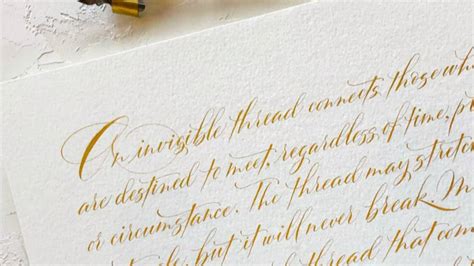 An invisible thread connects those wh
are destined to meet, regardless of time, p
or circumstance. The thread may stret
but it will never break. M
thread that com